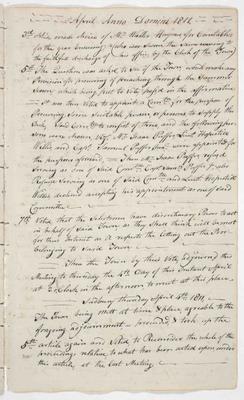 April Anno Domini 1811
3d Also made choice of Mr Walter Haynes for Constable
for the year ensuing who was sworn the same evening to
the faithful discharge of his office by the Clerk of the Town
5th The Question was asked to See if the Town would make any
Provision for procuring of preaching through the Summer
Season which being put to vote passed in the affirmative
It was then Voted to appoint a Comtee for the purpose of
procuring some Suitable person or persons to Supply the
desk Said Comtee to consist of three and the following per-
sons were chosen Mr Asahel Puffer Lieut Hopestill
Willis and Capt Samuel Puffer Junr were appointed for
the purpose aforesaid Then Mr Puffer refused
Serving as one of Said Comtee Capt Saml Puffer Jr also
Refuse Serving as one of Said Comtee and Lieut Hopestill
Willis declined accepting his appointment as one of said
Committee
7th Voted that the Selectmen have discretionary Power to act
in behalf of Said Town as they Shall think will conduct
for their Interest as it respects the letting out the Pew
belonging to Said Town
Then the Town by their Vote adjourned this
Meeting to thursday the 4th Day of this Instant April
at 2 o'Clock in the afternoon to meet at this place
Sudbury thursday April 4th 1811
The Town being met at time & place agreeable to the
forgoing adjournment proceeded & took up the
5th article again and Voted to Reconsider the whole of the
proceedings relative to what has been acted upon under
this article, at the last Meeting